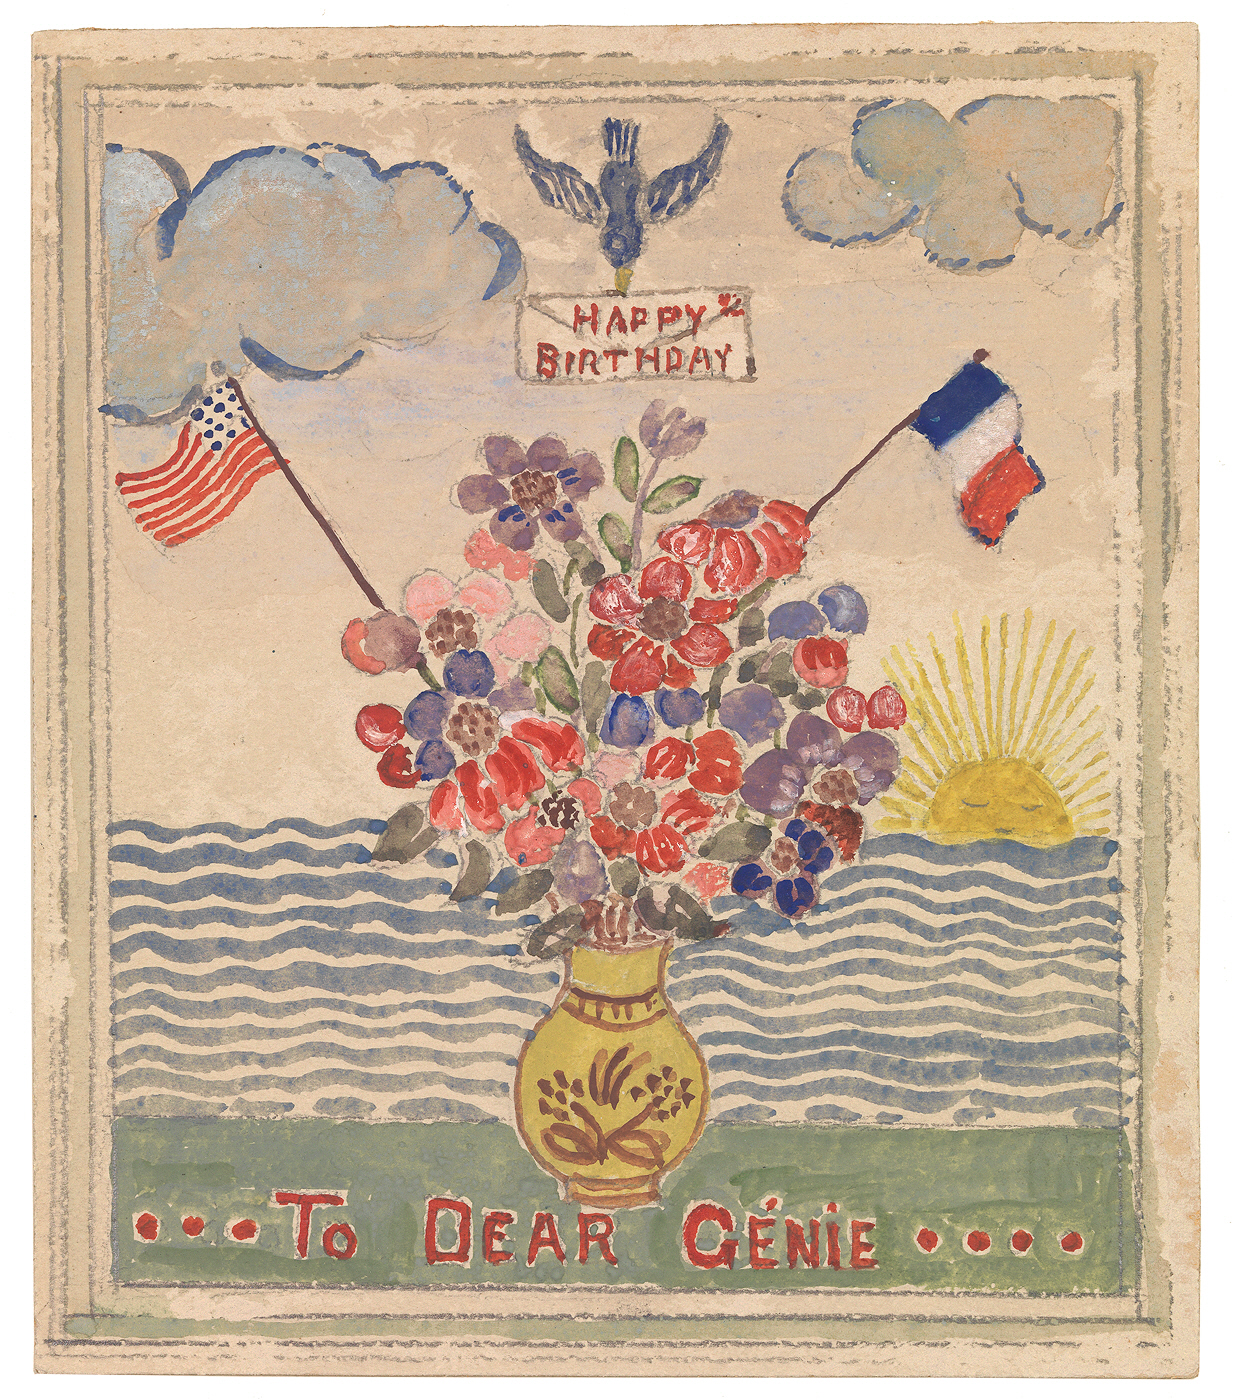 HAPPY
BIRTHDAY
To DEAR GÉNiE